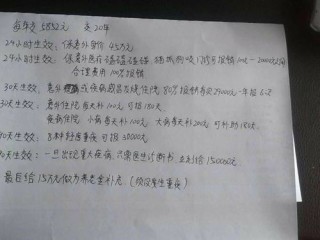 每年交 5852元 交20年
24小时生效: 保意外身价 45万元
24小时生效: 保意外磕磕碰碰 猫抓狗咬 门诊可报销 100-20000之间
合理费用 100%报销
30天生效: 意外或疾病感冒发烧住院 80%报销每次29000 一年报
30天生效: 意外住院每天补100元 可报180天
疾病住院 小病每天补100元 大病每天补200元 可补助180天
90天生效: 8种轻症重疾 可报 30000元
90天生效: 一旦出现重大疾病 只要医生诊断书 立刻给 150000元
最后给15万元做为养老金补充 (没发生重疾)